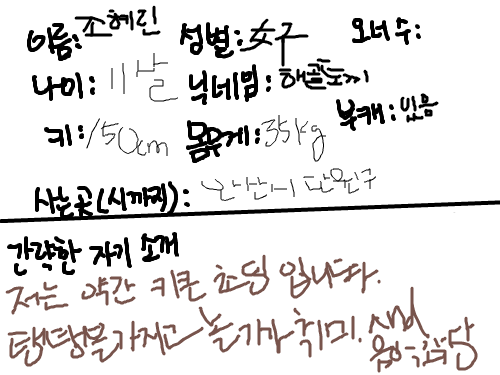 이름: 조혜린 성별: 女구 오너 수:
나이: 11살 닉네임: 해골토끼
키: 150cm 몸무게: 35kg 부캐: 있음
사는곳(시까지): 안산시 단원구
간략한 자기 소개
저는 약간 키큰 초딩 입니다.
탱탱볼 가지고 놀기가 취미. And